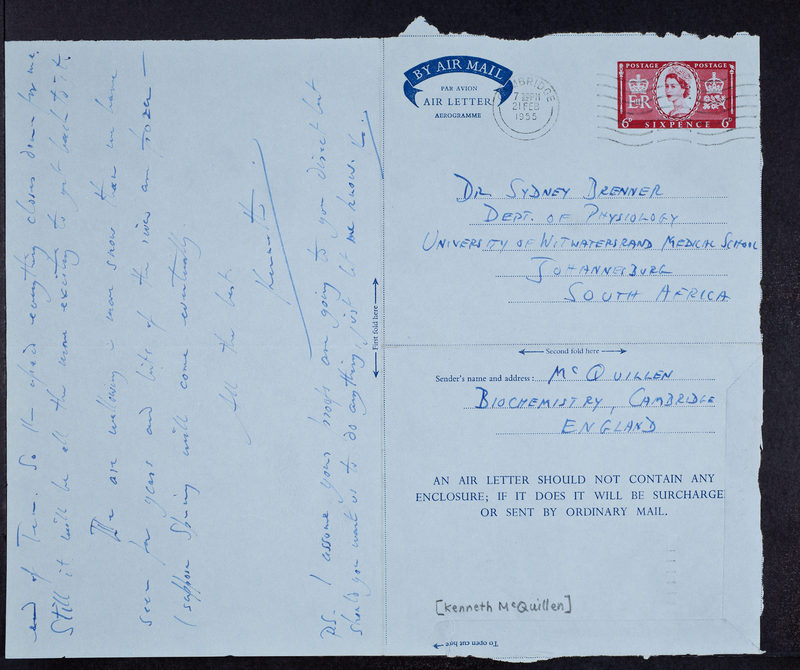 end of Term. So th— everything closes down for me.
Still it will be all the more exciting to get back to it.
We are wallowing more snow than we have
seen for years and bits of the river are frozen —
I suppose Spring will come eventually.
All the best
Kenneth.
P.S. I assume your proofs are going to you direct but
should you want us to do anything, just let me know. K.
First fold here
BY AIR MAIL
PAR AVION
AIR LETTER
AEROGRAMME
CAMBRIDGE
7 PM
21 FEB
1955
POSTAGE POSTAGE
E R
6D SIXPENCE 6D
DR SYDNEY BRENNER
DEPT. OF PHYSIOLOGY
UNIVERSITY OF WITWATERSRAND MEDICAL SCHOOL
JOHANNESBURG
SOUTH AFRICA
Second fold here
Sender's name and address: McQUILLEN
BIOCHEMISTRY, CAMBRIDGE
ENGLAND
AN AIR LETTER SHOULD NOT CONTAIN ANY
ENCLOSURE; IF IT DOES IT WILL BE SURCHARGE
OR SENT BY ORDINARY MAIL.
[Kenneth McQuillen]
To open cut here